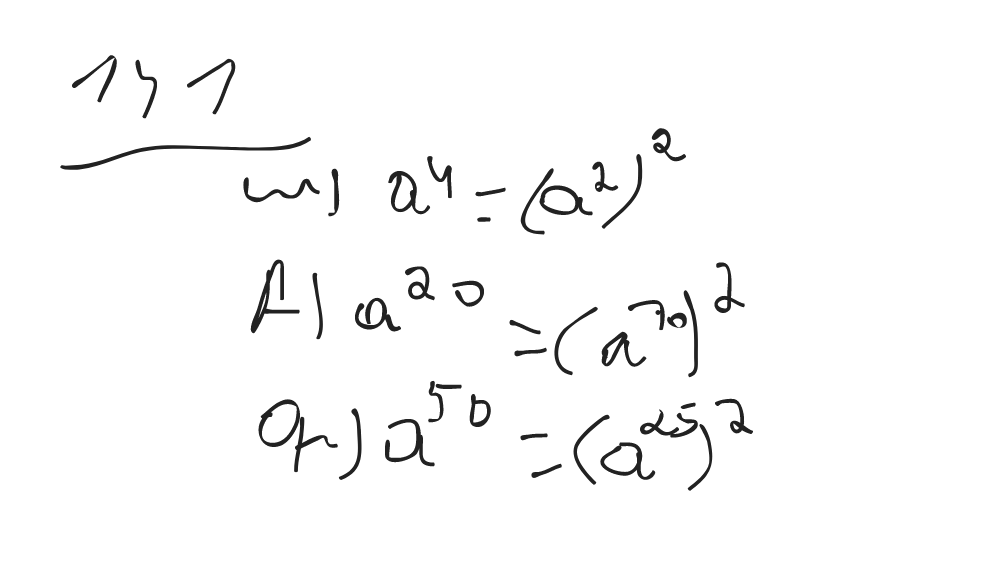 141
ա) a⁴ = (a²)²
բ) a²⁰ = (a¹⁰)²
գ) a⁵⁰ = (a²⁵)²